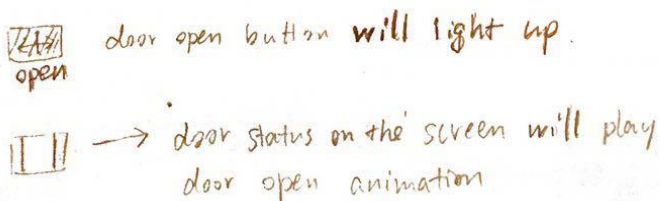 door open button will light up.
open
door status on the screen will play
door open animation